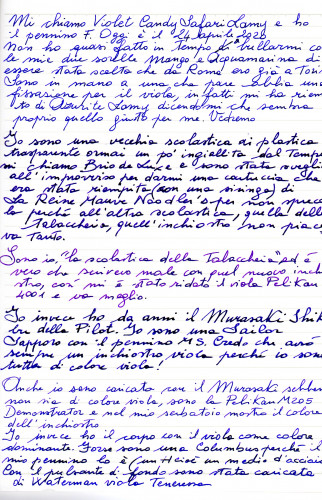 Mi chiamo Violet Candy Safari Lamy e ho
il pennino F. Oggi è il 24 Aprile 2020
Non ho quasi fatto in tempo a "bullarmi" con
le mie due sorelle Mango e Aquamarina di
essere stata scelta che da Roma ero già a Torino
Sono in mano a una che pare abbia una
fissazione per il viola, infatti mi ha riempi
to di Azurite Lamy dicendomi che sembra
proprio quello giusto per me. Vedremo
Io sono una vecchia scolastica di plastica
trasparente ormai un po' ingiallita dal Tempo
mi chiamo Brio de Luxe e sono stata svegli
all'improvviso per darmi una cartuccia che
era stata riempita (con una siringa) di
La Reine Mauve Noodler's per non spreca
la perché all'altra scolastica, quella della
Tabaccheria, quell'inchiostro non piac
va tanto.
Sono io, "la scolastica della Tabaccheia", ed è
vero che scrivevo male con quel nuovo inchio
stro, così mi è stato ridato il viola Pelikan
4001 e va meglio.
Io invece ho da anni il Murasaki Shik
bu della Pilot. Io sono una Sailor
Sapporo con il pennino MS. Credo che avrò
sempre un inchiostro viola perché io sono
tutta di colore viola!
Anche io sono caricata con il Murasaki sebbene
non sia di colore viola, sono la Pelikan M205
Demonstrator e nel mio serbatoio mostro il colore
dell'inchiostro
Io invece ho il corpo con il viola come colore
dominante. Forse sono una Columbus perché il
mio pennino lo è. un medio d'acciaio
Con il pulsante di fondo sono stata caricata
di Waterman viola Tenerezza